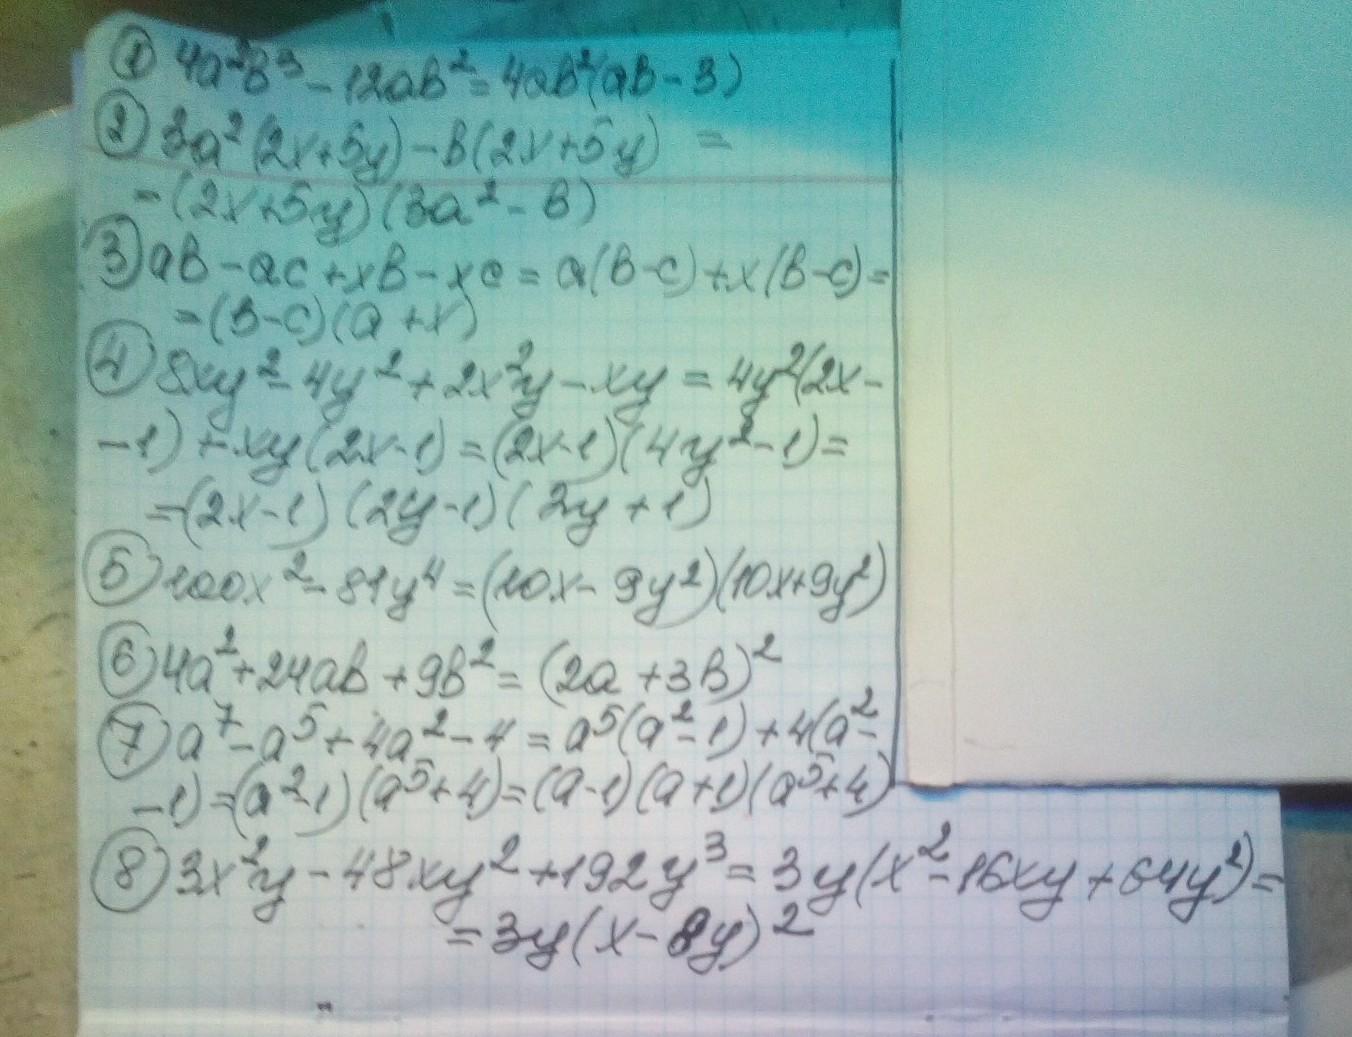 ① 4a²b³ - 12ab² = 4ab²(ab - 3)
② 3a²(2x+5y) - b(2x+5y) =
= (2x+5y)(3a² - b)
③ ab - ac + xb - xc = a(b-c) + x(b-c) =
= (b-c)(a+x)
④ 8xy² - 4y² + 2x²y - xy = 4y²(2x -
- 1) + xy(2x-1) = (2x-1)(4y²-1) =
= (2x-1)(2y-1)(2y+1)
⑤ 100x² - 81y⁴ = (10x - 9y²)(10x+9y²)
⑥ 4a² + 24ab + 9b² = (2a + 3b)²
⑦ a⁷ - a⁵ + 4a² - 4 = a⁵(a² - 1) + 4(a² -
- 1) = (a²-1)(a⁵+4) = (a-1)(a+1)(a⁵+4)
⑧ 3x²y - 48xy² + 192y³ = 3y(x² - 16xy + 64y²) =
= 3y(x - 8y)²